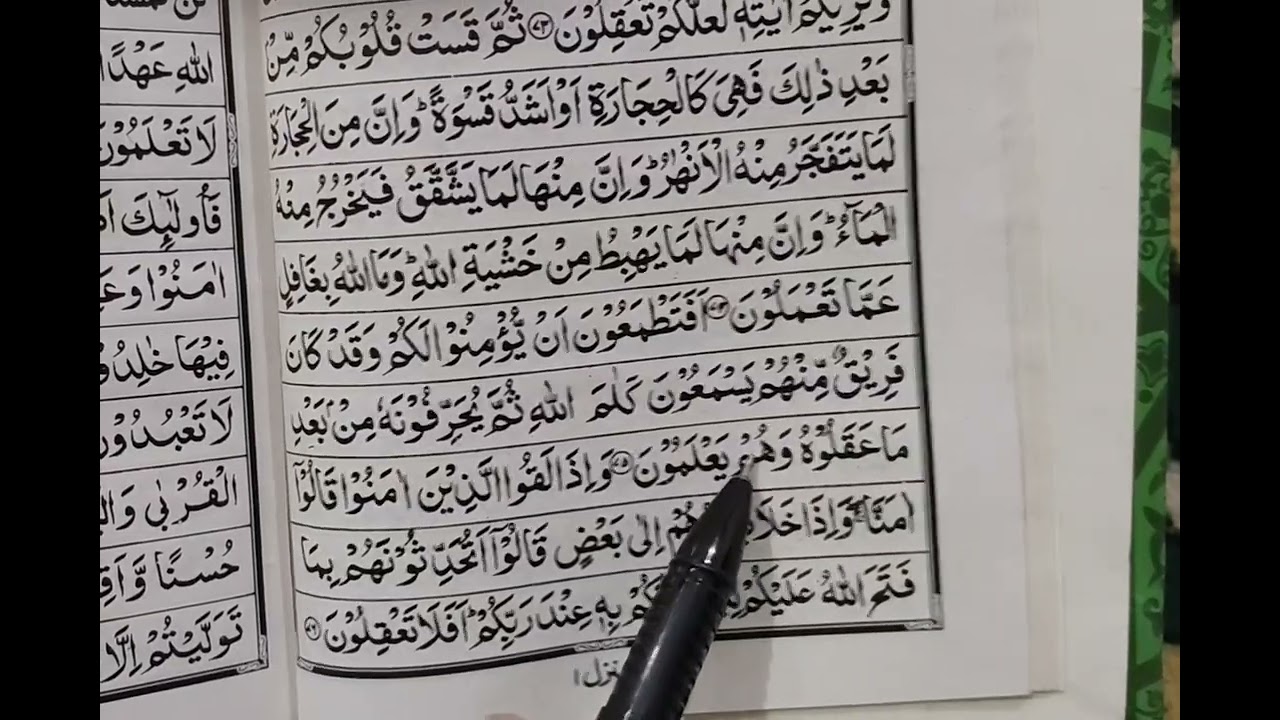 وَيُرِيْكُمْ اٰيٰتِهٖ لَعَلَّكُمْ تَعْقِلُوْنَ ﴿۷۳﴾ ثُمَّ قَسَتْ قُلُوْبُكُمْ مِّنْ
بَعْدِ ذٰلِكَ فَهِيَ كَالْحِجَارَةِ اَوْ اَشَدُّ قَسْوَةً ؕ وَاِنَّ مِنَ الْحِجَارَةِ
لَمَا يَتَفَجَّرُ مِنْهُ الْاَنْهٰرُ ؕ وَاِنَّ مِنْهَا لَمَا يَشَّقَّقُ فَيَخْرُجُ مِنْهُ
الْمَآءُ ؕ وَاِنَّ مِنْهَا لَمَا يَهْبِطُ مِنْ خَشْيَةِ اللّٰهِ ؕ وَمَا اللّٰهُ بِغَافِلٍ
عَمَّا تَعْمَلُوْنَ ﴿۷۴﴾ اَفَتَطْمَعُوْنَ اَنْ يُّؤْمِنُوْا لَكُمْ وَقَدْ كَانَ
فَرِيْقٌ مِّنْهُمْ يَسْمَعُوْنَ كَلٰمَ اللّٰهِ ثُمَّ يُحَرِّفُوْنَهٗ مِنْۢ بَعْدِ
مَا عَقَلُوْهُ وَهُمْ يَعْلَمُوْنَ ﴿۷۵﴾ وَاِذَا لَقُوا الَّذِيْنَ اٰمَنُوْا قَالُوْٓا
اٰمَنَّا ۖۚ وَاِذَا خَلَا اِلٰى بَعْضٍ قَالُوْٓا اَتُحَدِّثُوْنَهُمْ بِمَا
فَتَحَ اللّٰهُ عَلَيْكُمْ بِهٖ عِنْدَ رَبِّكُمْ ؕ اَفَلَا تَعْقِلُوْنَ ﴿۷۶﴾
اللّٰهِ عَهْدًا
لَا تَعْلَمُوْنَ
فَاُولٰٓئِكَ
اٰمَنُوْا وَ
فِيْهَا
لَا تَعْبُدُوْنَ
الْقُرْبٰى
حُسْنًا
تَوَلَّيْتُمْ اِلَّا